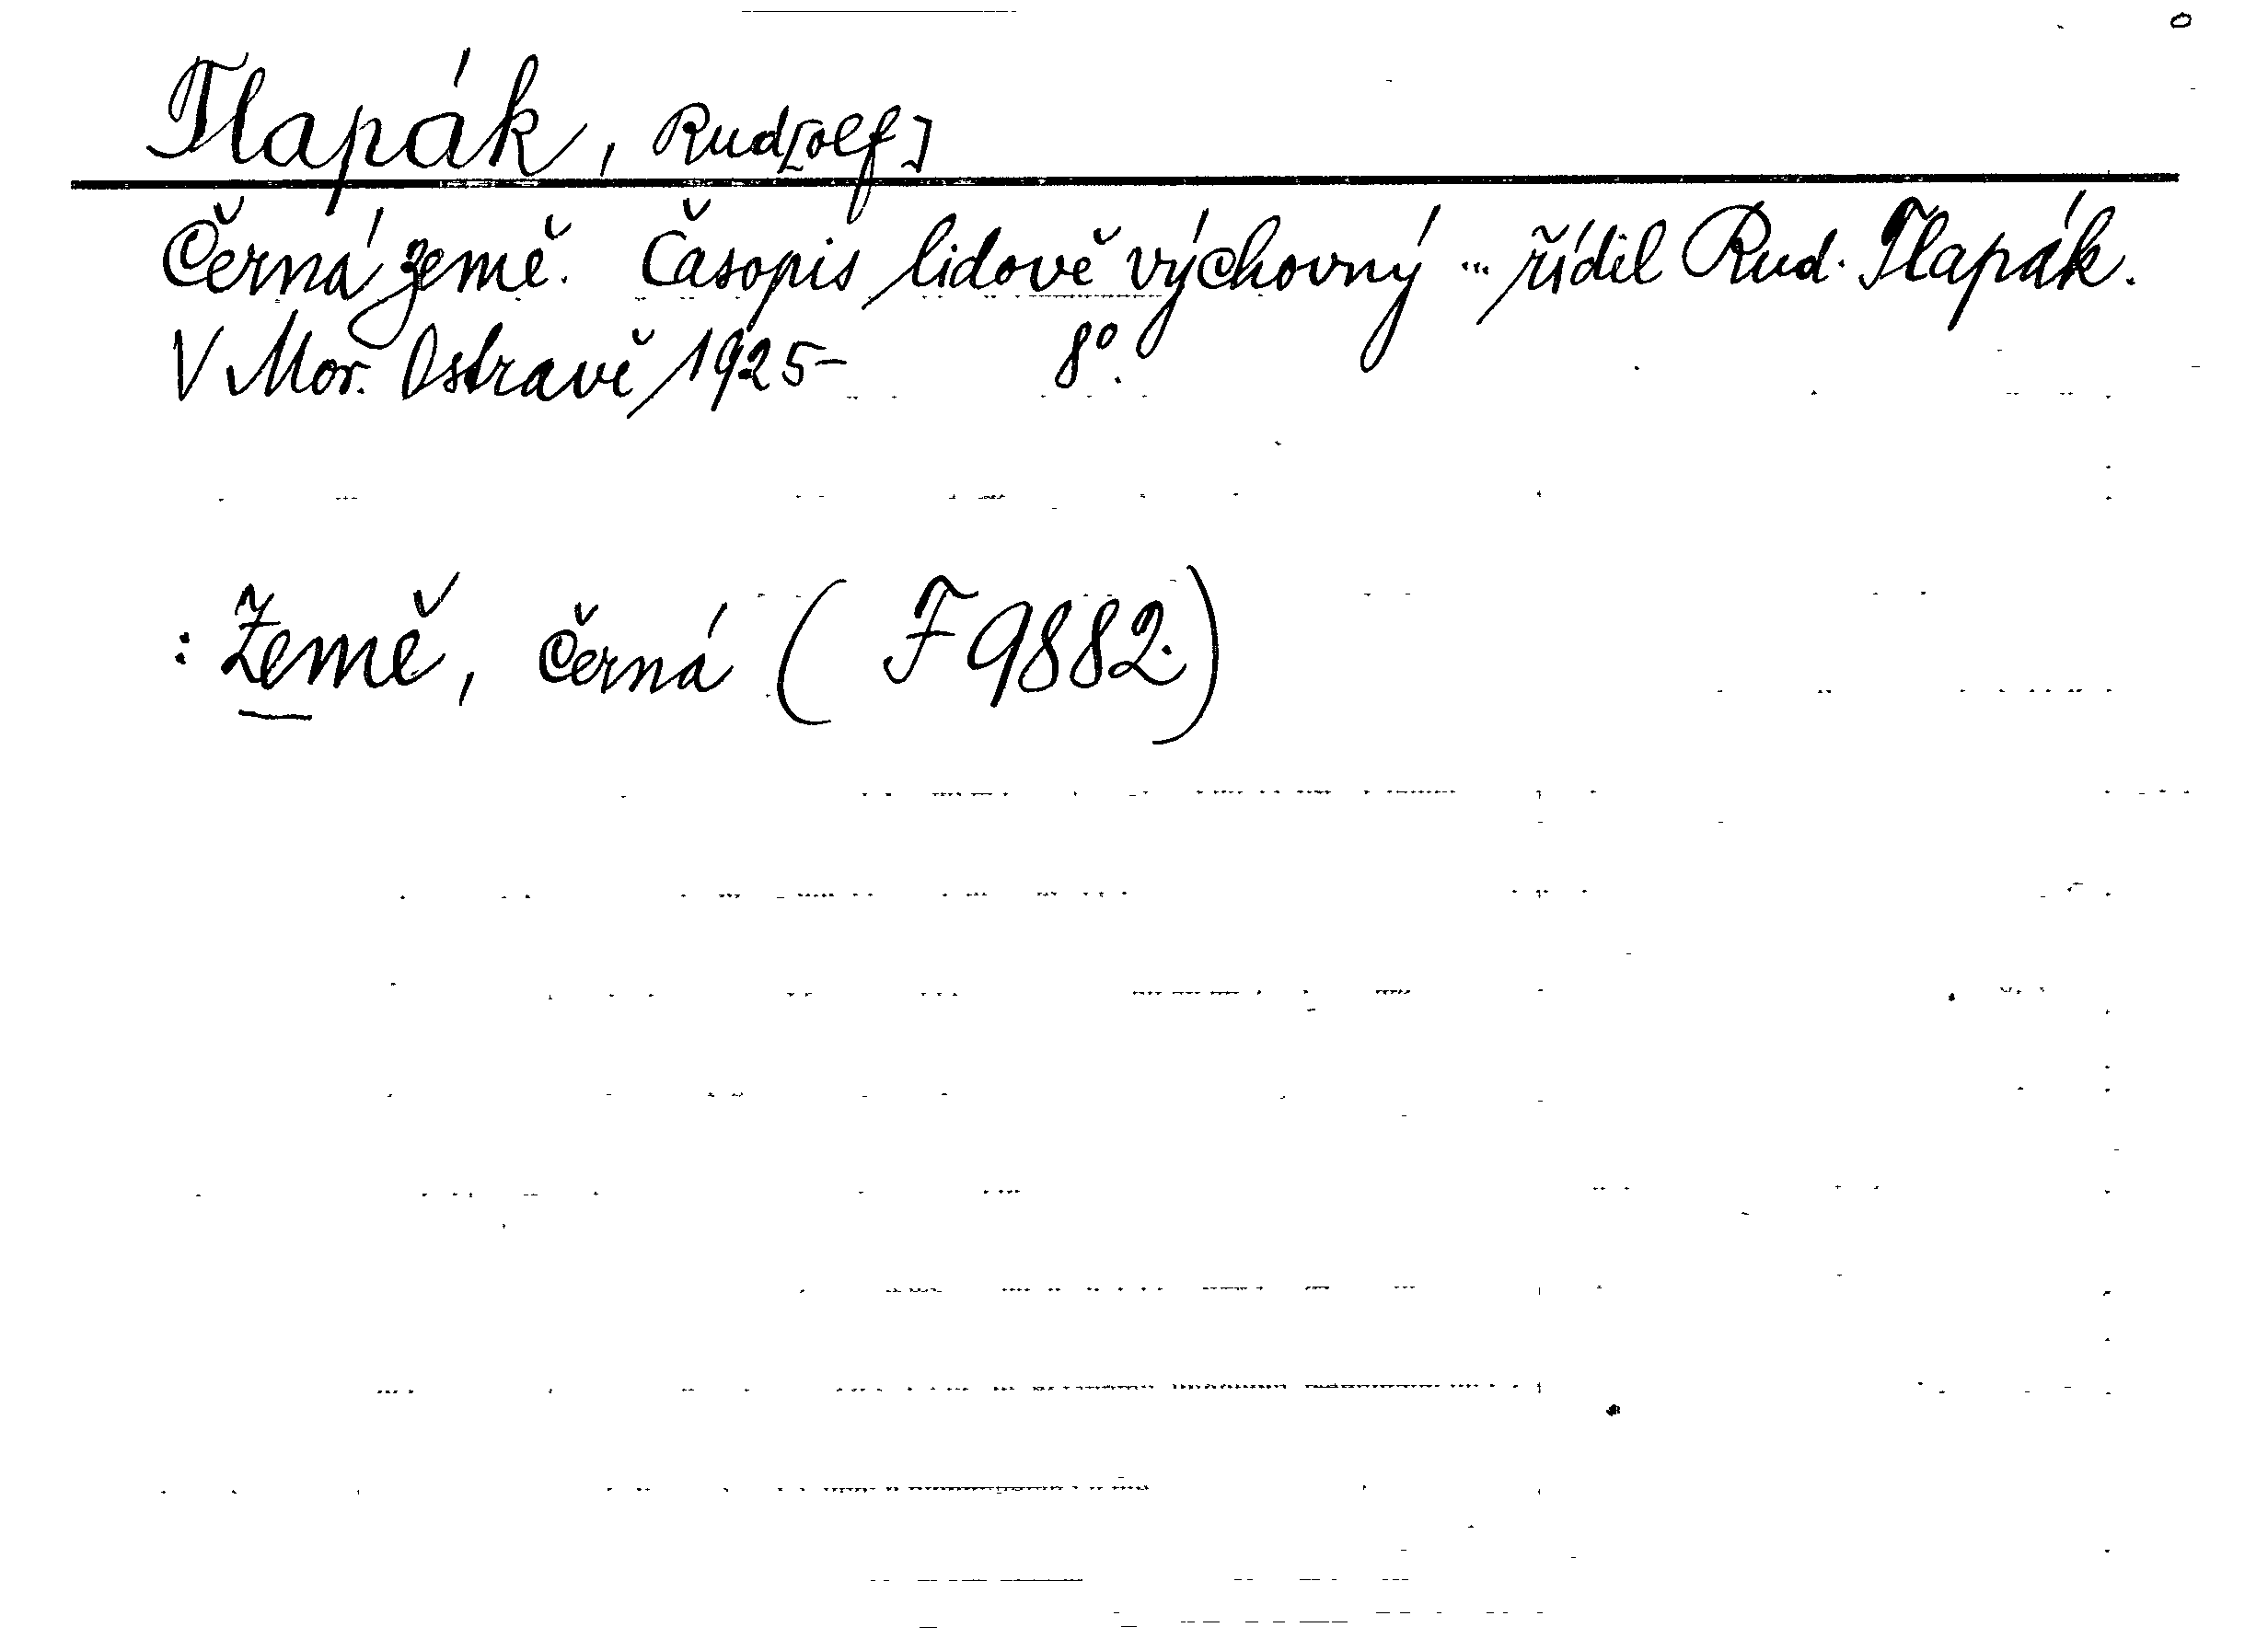 Tlapák, Rud[olf]
Černá země. Časopis lidově výchovný ... řídil Rud. Tlapák.
V Mor. Ostravě, 1925- 8º.
: Země, černá (F 9882.)